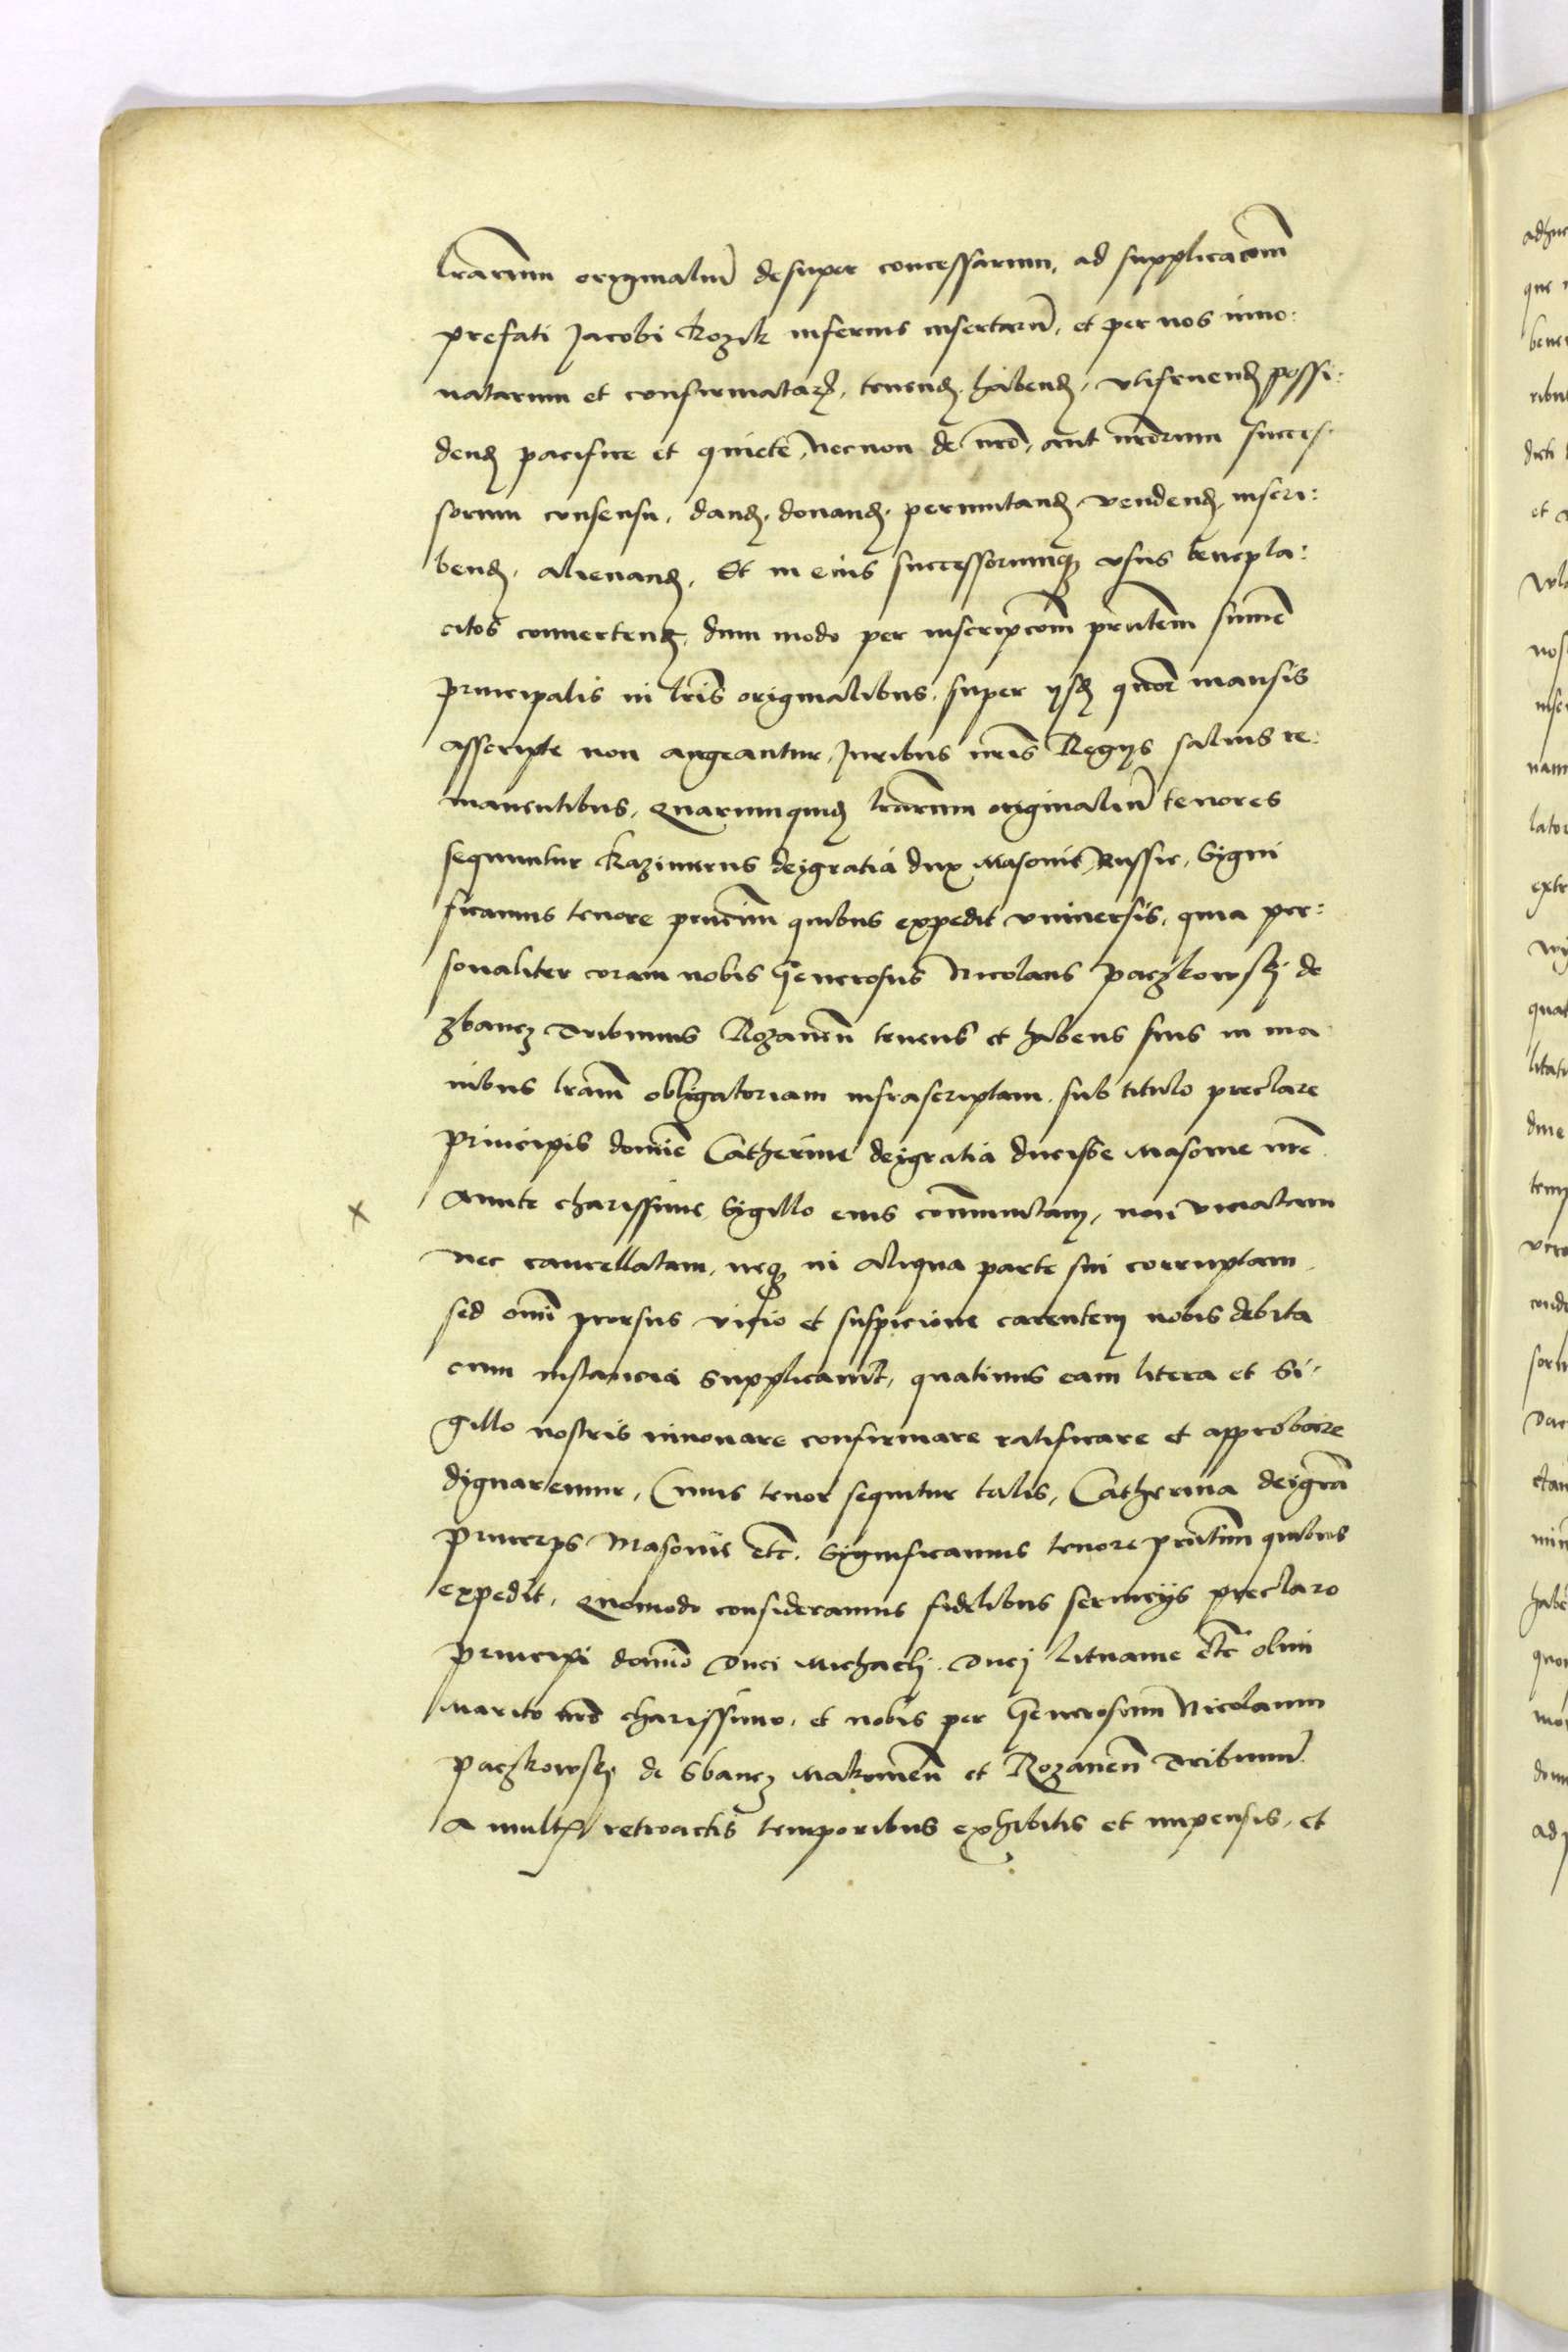 lrarum originaliũ desuper concessarum, ad supplicacõm
prefati Jacobi Kozik inferius insertarũ, et per nos inno:
uatarum et confirmatarꝝ, tenendꝫ, habendꝫ, vtifruendꝫ possi:
dendꝫ pacifice et quiete, necnon de nrõ, aut nrõrum succes:
sorum consensu, dandꝫ, donandꝫ, permutandꝫ vendendꝫ, inscri:
bendꝫ, alienandꝫ, Et in eius successorumqꝫ vsus benepla:
citos conuertendꝫ, dum modo per inscripcõm prñtem sum̃e
principalis in lrĩs originalibus, super ijsdꝫ mansis
asscripte non augeantur, Juribus nrĩs Regijs saluis re:
manentibus, Quarumquidꝫ lrarum originaliũ tenores
sequuntur Kazimirus deigratia dux Masouie, Russie, Signi
ficamus tenore prñcium quibus expedit vniuersis, quia per:
sonaliter coram nobis Generosus Nicolaus Paczkowskj de
zbancz Tribunus Rozaneñ tenens et habens suis in ma
nibus lrãm obligatoriam infrascriptam, sub titulo preclare
principis domiẽ Catherine deigratia ducisse Masouie nrẽ
Amite charissime, Sigillo eius cõmmunitam, non viciatam
nec cancellatam, neqꝫ in aliqua parte sui corruptam
sed omĩ prorsus vicio et suspicione carentem nobis debita
cum instancia supplicauit, quatinus eam litera et Si-
gillo nostris innouare confirmare ratificare et approbare
dignaremur, Cuius tenor sequitur talis, Catherina deigrã
princeps Masouie etc̃. Significamus tenore prñtium quibus
expedit, Quomodo consideramus fidelibus seruicijs preclaro
principi domĩo Duci Michaelj Ducj Lituanie etc̃ olim
Marito nrõ charissimo, et nobis per Generosum Nicolaum
Paczkowskj de Sbancz Makowieñ et Rozaneñ Tribunũ
A multis retroactis temporibus exhibitis et impensis, et